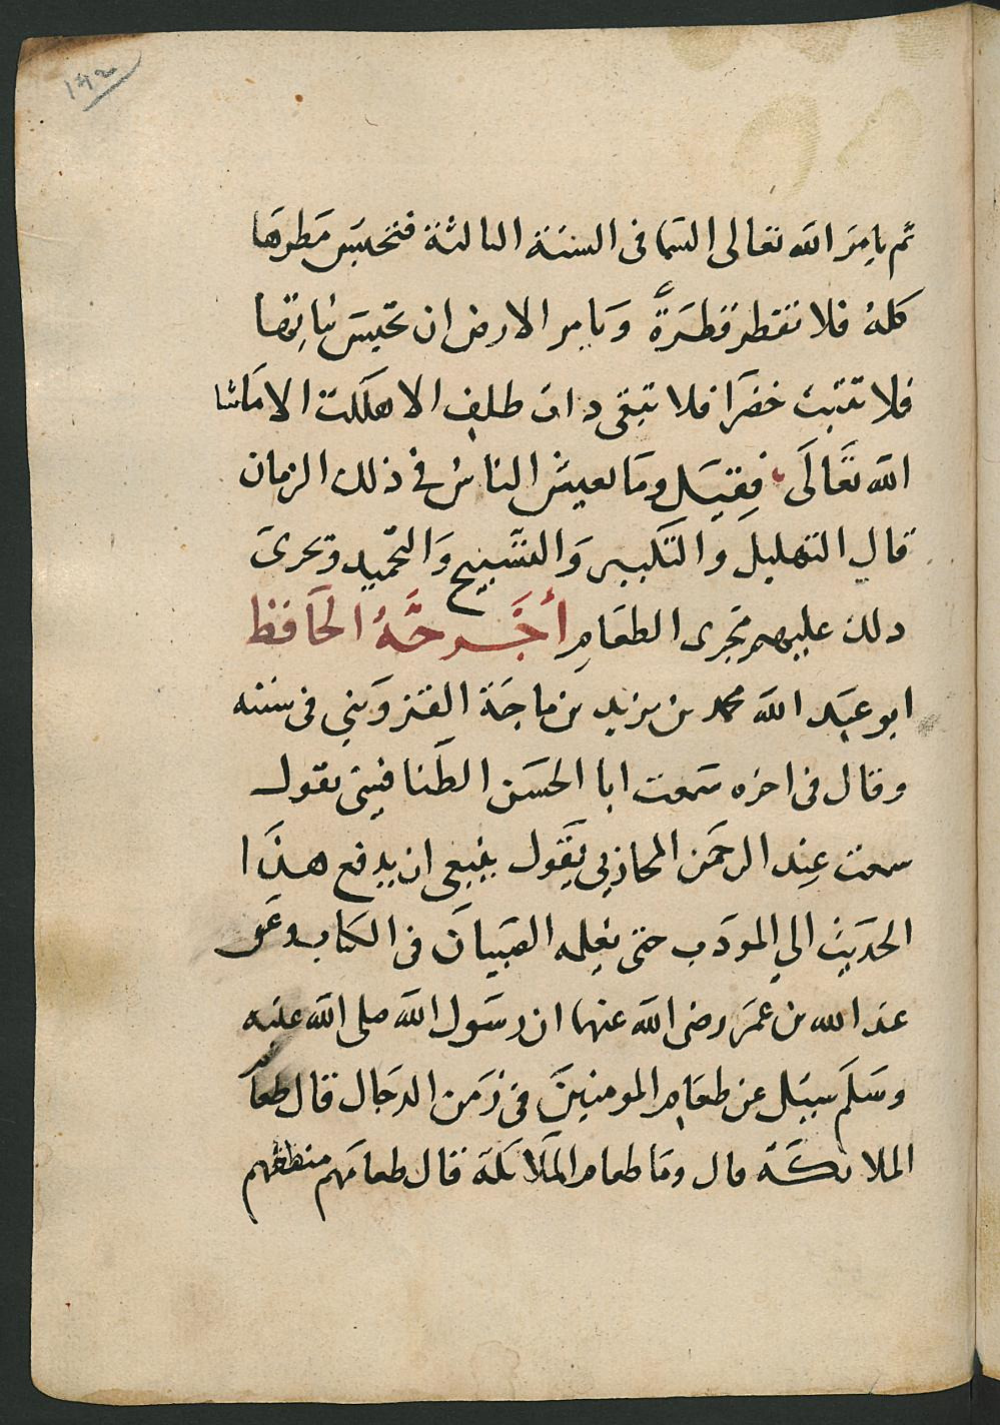 ١٩٢
ثم يامر الله تعالى السما فى السنة الثالثة فتحبس مطرها
كله فلا تقطر قطرة ويامر الارض ان تحبس نباتها
فلا تنبت خضرا فلا تبقى ذات ظلف الا هلكت الا ماشا
الله تعالى فقيل وما يعيش الناس في ذلك الزمان
قال التهليل والتكبير والتسبيح والتحميد وتجرى
ذلك عليهم مجرى الطعام أخرجه الحافظ
ابو عبد الله محمد بن يزيد بن ماجة القزوينى فى سننه
وقال فى اخره سمعت ابا الحسن الطنافيسى يقول
سمعت عبد الرحمن المحاربي يقول ينبغى ان يدفع هذا
الحديث الي المودب حتى يعلمه الصبيان فى الكتاب وعن
عبد الله بن عمر رضى الله عنهما ان رسول الله صلى الله عليه
وسلم سيل عن طعام المومنين فى زمن الدجال قال طعام
الملائكة قال وما طعام الملائكة قال طعامهم منطقهم